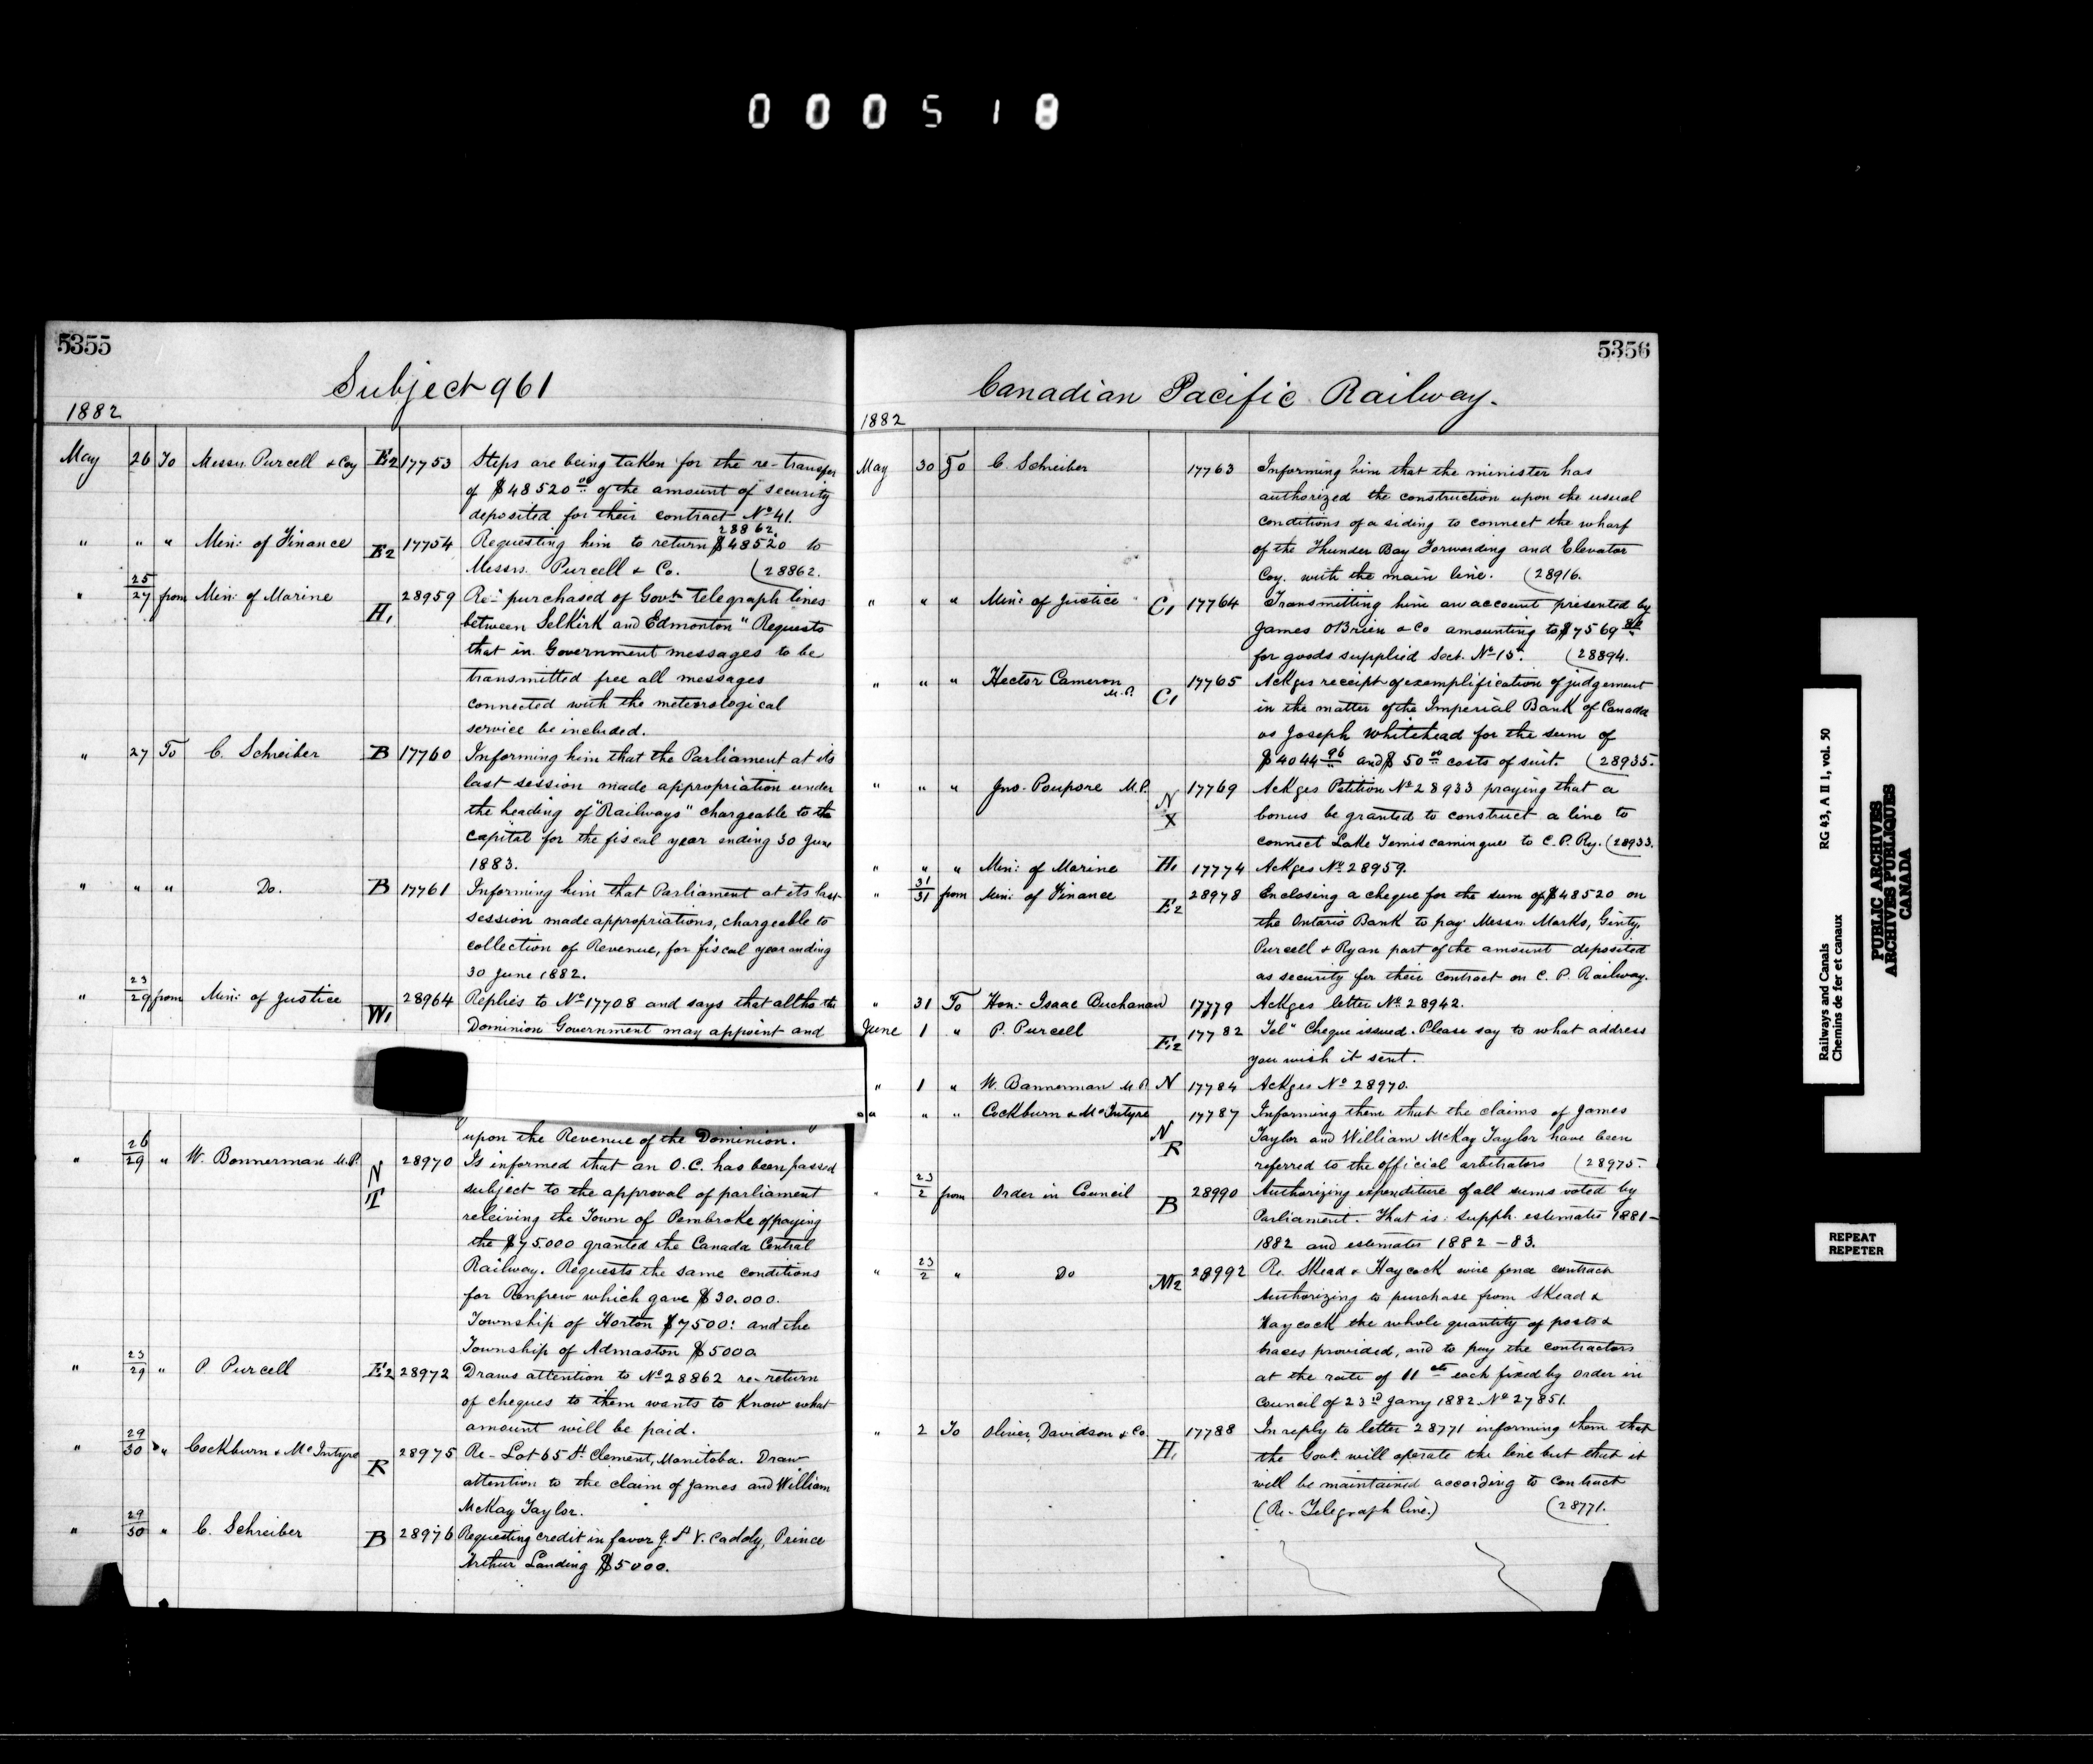 000518
5355
Subject 961
1882
May 26 To Messrs. Purcell & Coy E2 17753 Steps are being taken for the re-transfer
of $48520 00 of the amount of security
deposited for their contract No 41.
28862
" " " Min: of Finance E2 17754 Requesting him to return $48520 to
Messrs. Purcell & Co. (28862.
" 25/27 from Min: of Marine H1 28959 Re- purchased of Govt. Telegraph lines
between Selkirk and Edmonton" Requests
that in Government messages to be
transmitted free all messages
connected with the meteorological
service be included.
" 27 To C. Schreiber B 17760 Informing him that the Parliament at its
last session made appropriation under
the heading of "Railways" chargeable to the
Capital for the fiscal year ending 30 June
1883.
" " " Do. B 17761 Informing him that Parliament at its last
session made appropriations, chargeable to
collection of Revenue, for fiscal year ending
30 June 1882.
" 23/29 from Min: of Justice W1 28964 Replies to No 17708 and says that altho the
Dominion Government may appoint and
upon the Revenue of the Dominion.
" 26/29 " W. Bannerman M.P. N T 28970 Is informed that an O.C. has been passed
subject to the approval of parliament
releiving the Town of Pembroke of paying
the $75.000 granted the Canada Central
Railway. Requests the same conditions
for Renfrew which gave $30.000.
Township of Horton $7500: and the
Township of Admaston $5000
" 23/29 " P. Purcell E2 28972 Draws attention to No 28862 re-return
of cheques to them wants to know what
amount will be paid.
" 29/30 " Cockburn & McIntyre R 28975 Re- Lot 65 St. Clement, Manitoba. Draw
attention to the claim of James and William
McKay Taylor.
" 29/30 " C. Schreiber B 28976 Requesting credit in favor J. St V. Caddy, Prince
Arthur Landing $5000.
5356
Canadian Pacific Railway.
1882
May 30 To C. Schreiber 17763 Informing him that the minister has
authorized the construction upon the usual
conditions of a siding to connect the wharf
of the Thunder Bay Forwarding and Elevator
Coy. with the main line. (28916.
" " " Min: of Justice C1 17764 Transmitting him an account presented by
James OBrien & Co amounting to $7569
for goods supplied Sect. No 15". (28894.
" " " Hector Cameron M.P. C1 17765 Ackges receipt of exemplification of judgement
in the matter of the Imperial Bank of Canada
vs Joseph Whitehead for the sum of
$4044 96 and $50 00 costs of suit. (28935.
" " " Jno. Poupore M.P. N X 17769 Ackges Petition No 28933 praying that a
bonus be granted to construct a line to
connect Lake Temiscamingue to C.P. Ry. (28933.
" " " Min: of Marine H1 17774 Ackges No 28959.
" 31/31 from Min: of Finance E2 28978 Enclosing a cheque for the sum of $48520 on
the Ontario Bank to pay Messrs. Marks, Ginty,
Purcell & Ryan part of the amount deposited
as security for their contract on C.P. Railway.
" 31 To Hon: Isaac Buchanan 17779 Ackges letter No 28942.
June 1 " P. Purcell E2 17782 Tel" Cheque issued. Please say to what address
you wish it sent.
" 1 " W. Bannerman M.P. N 17784 Ackges No 28970.
" " " Cockburn & McIntyre N R 17787 Informing them that the claims of James
Taylor and William McKay Taylor have been
referred to the official arbitrators (28975.
" 23/2 from Order in Council B 28990 Authorizing expenditure of all sums voted by
Parliament. That is: supph. estimates 1881-
1882 and estimates 1882-83.
" 23/2 " Do M2 28992 Re. Skead & Haycock wire fence contract
Authorizing to purchase from Skead &
Haycock the whole quantity of posts &
braces provided, and to pay the contractors
at the rate of 11 cts each fixed by Order in
Council of 23rd Janry 1882 No 27851.
" 2 To Oliver, Davidson & Co. H1 17788 In reply to letter 28771 informing them that
the Govt. will operate the line but that it
will be maintained according to contract
(Re- Telegraph line.) (28771.
Railways and Canals RG 43, A II 1, vol. 50
Chemins de fer et canaux
PUBLIC ARCHIVES
ARCHIVES PUBLIQUES
CANADA
REPEAT
REPETER